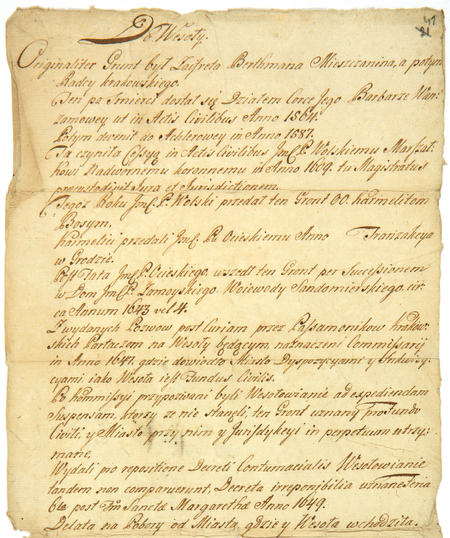 41
21
Do Wesoły.
Originaliter Grunt był Zaifreta Bethmana Mieszczanina, a potym
Radcy krakowskiego.
Ten po śmierci dostał się Działem Corce Jego Barbarze Wan
zamowey ut in Actis Civilibus Anno 1564.
Potym devenit do Achlerowey in Anno 1587.
Ta czyniła Cessyą in Actis Civilibus Jmć P. Wolskiemu Marszał
kowi Nadwornemu koronnemu in Anno 1609. tu Magistratus
præcustodivit Jura et Jurisdictionem.
Tegoż Roku Jmć P. Wolski przedał ten Gront OO. karmelitom
Bosym.
karmelici przedali Jmć Pu Ocieskiemu Anno Tranzakcya
w Grodzie.
Post Fata Jmć P. Ocieskiego wszedł ten Gront per Successionem
w Dom Jmć P. Zamoyskiego Woiewody Sandomierskiego cir-
ca Annum 1643 vel 4.
Z wydanych Pozwow post Curiam przez Passamonikow krakow-
skich Partaczom na Wesoły będącym naznaczeni Commissarij
in Anno 1647. gdzie dowiodło Miasto Dyspozycyami y Inkwizy-
cyami iako Wesoła iest Fundus Civilis.
Po kommissyi przypozwani byli Wesołowianie ad expediendam
Suspensam, ktorzy ze nie staneli, ten Gront uznany pro Fundo
Civili, y Miasto przy nim y Jurisdykcyi in perpetuum utrzy-
mane.
Wydali po repositione Decreti Contumacialis Wesołowianie
tandem non comparuerunt, Decreta irreponibilia uznane feria
6ta post Fm Sanctæ Margarethæ Anno 1649.
Delata na Pobory od Miasta, gdzie y Wesoła wchodziła.